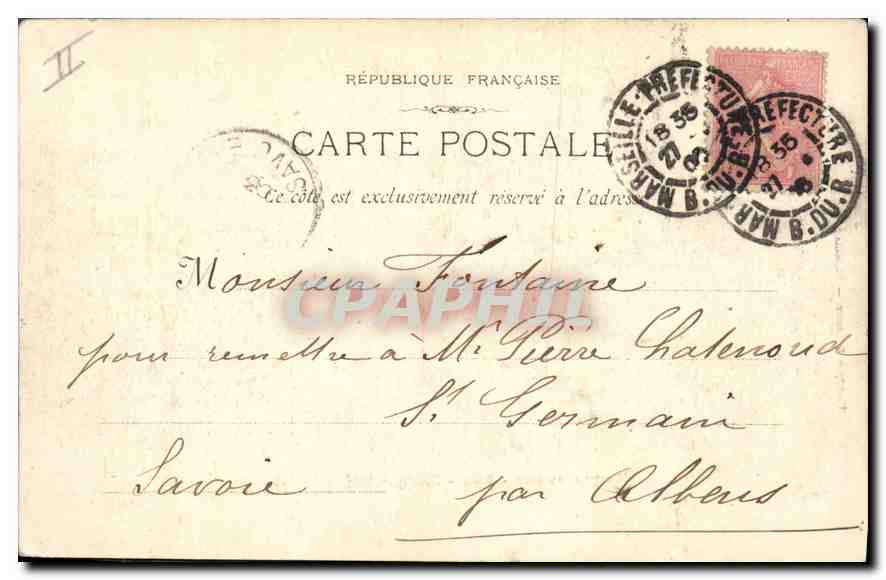 II
RÉPUBLIQUE FRANÇAISE
CARTE POSTALE
Ce côté est exclusivement réservé à l'adresse
MARSEILLE-PREFECTURE B. DU R.
18 35
27
PREFECTURE
8 35
27
MAR B. DU. R
SAVOIE
Monsieur Fontaine
CPAPHIL
pour remettre à Mr Pierre Chatenoud
St Germain
Savoie par Albens